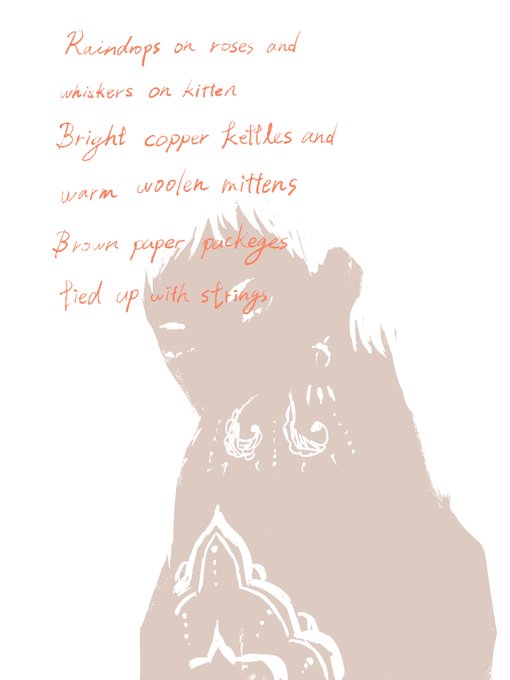 Raindrops on roses and
whiskers on kitten
Bright copper kettles and
warm woolen mittens
Brown paper packeges
tied up with strings